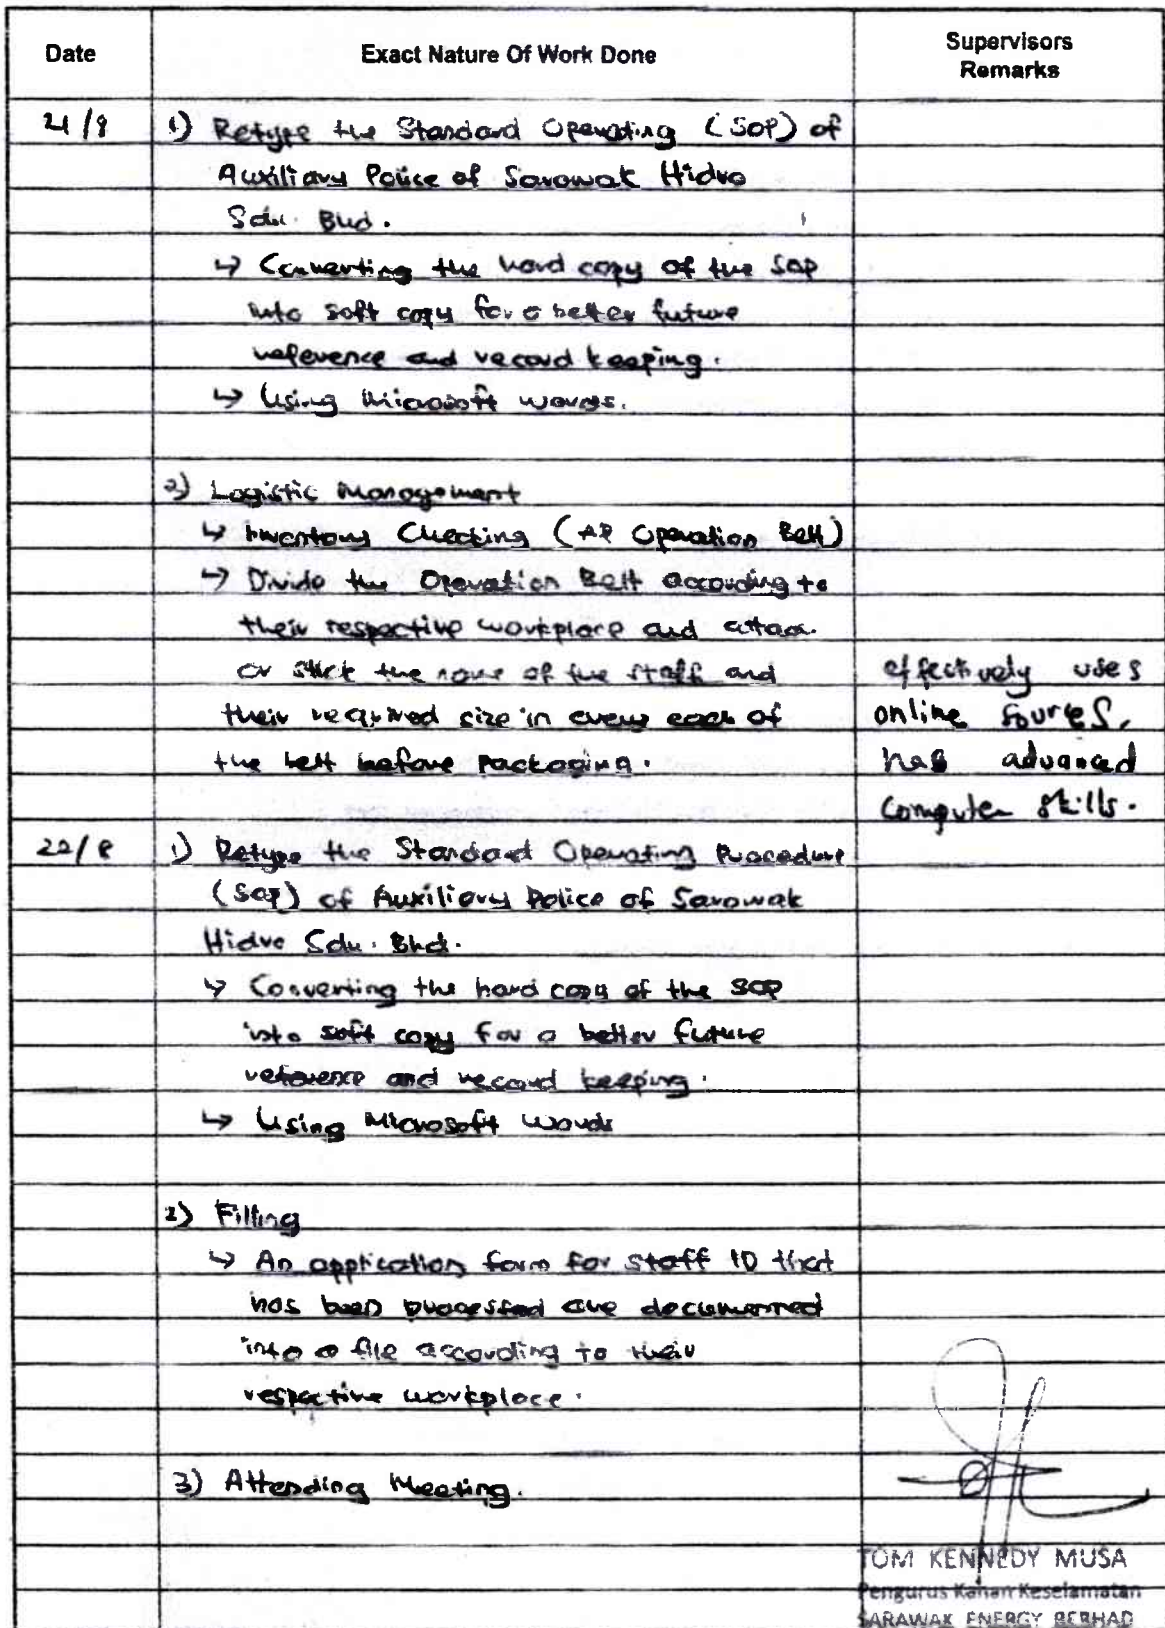 Date
Exact Nature Of Work Done
Supervisors
Remarks
21/8
1) Retype the Standard Operating (SOP) of
Auxiliary Police of Sarawak Hidro
Sdn. Bhd.
↳ Converting the hard copy of the SOP
into soft copy for a better future
reference and record keeping.
↳ Using Microsoft words.
2) Logistic Management
↳ Inventory Checking (AP Operation Belt)
↳ Divide the Operation Belt according to
their respective workplace and attach
or stick the name of the staff and
their required size in every each of
the belt before packaging.
effectively uses
online sources,
has advanced
computer skills.
22/8
1) Retype the Standard Operating Procedure
(SOP) of Auxiliary Police of Sarawak
Hidro Sdn. Bhd.
↳ Converting the hard copy of the SOP
into soft copy for a better future
reference and record keeping.
↳ Using Microsoft Words
2) Filling
↳ An application form for staff ID that
has been processed are documented
into a file according to their
respective workplace.
3) Attending Meeting.
TOM KENNEDY MUSA
Pengurus Kanan Keselamatan
SARAWAK ENERGY BERHAD